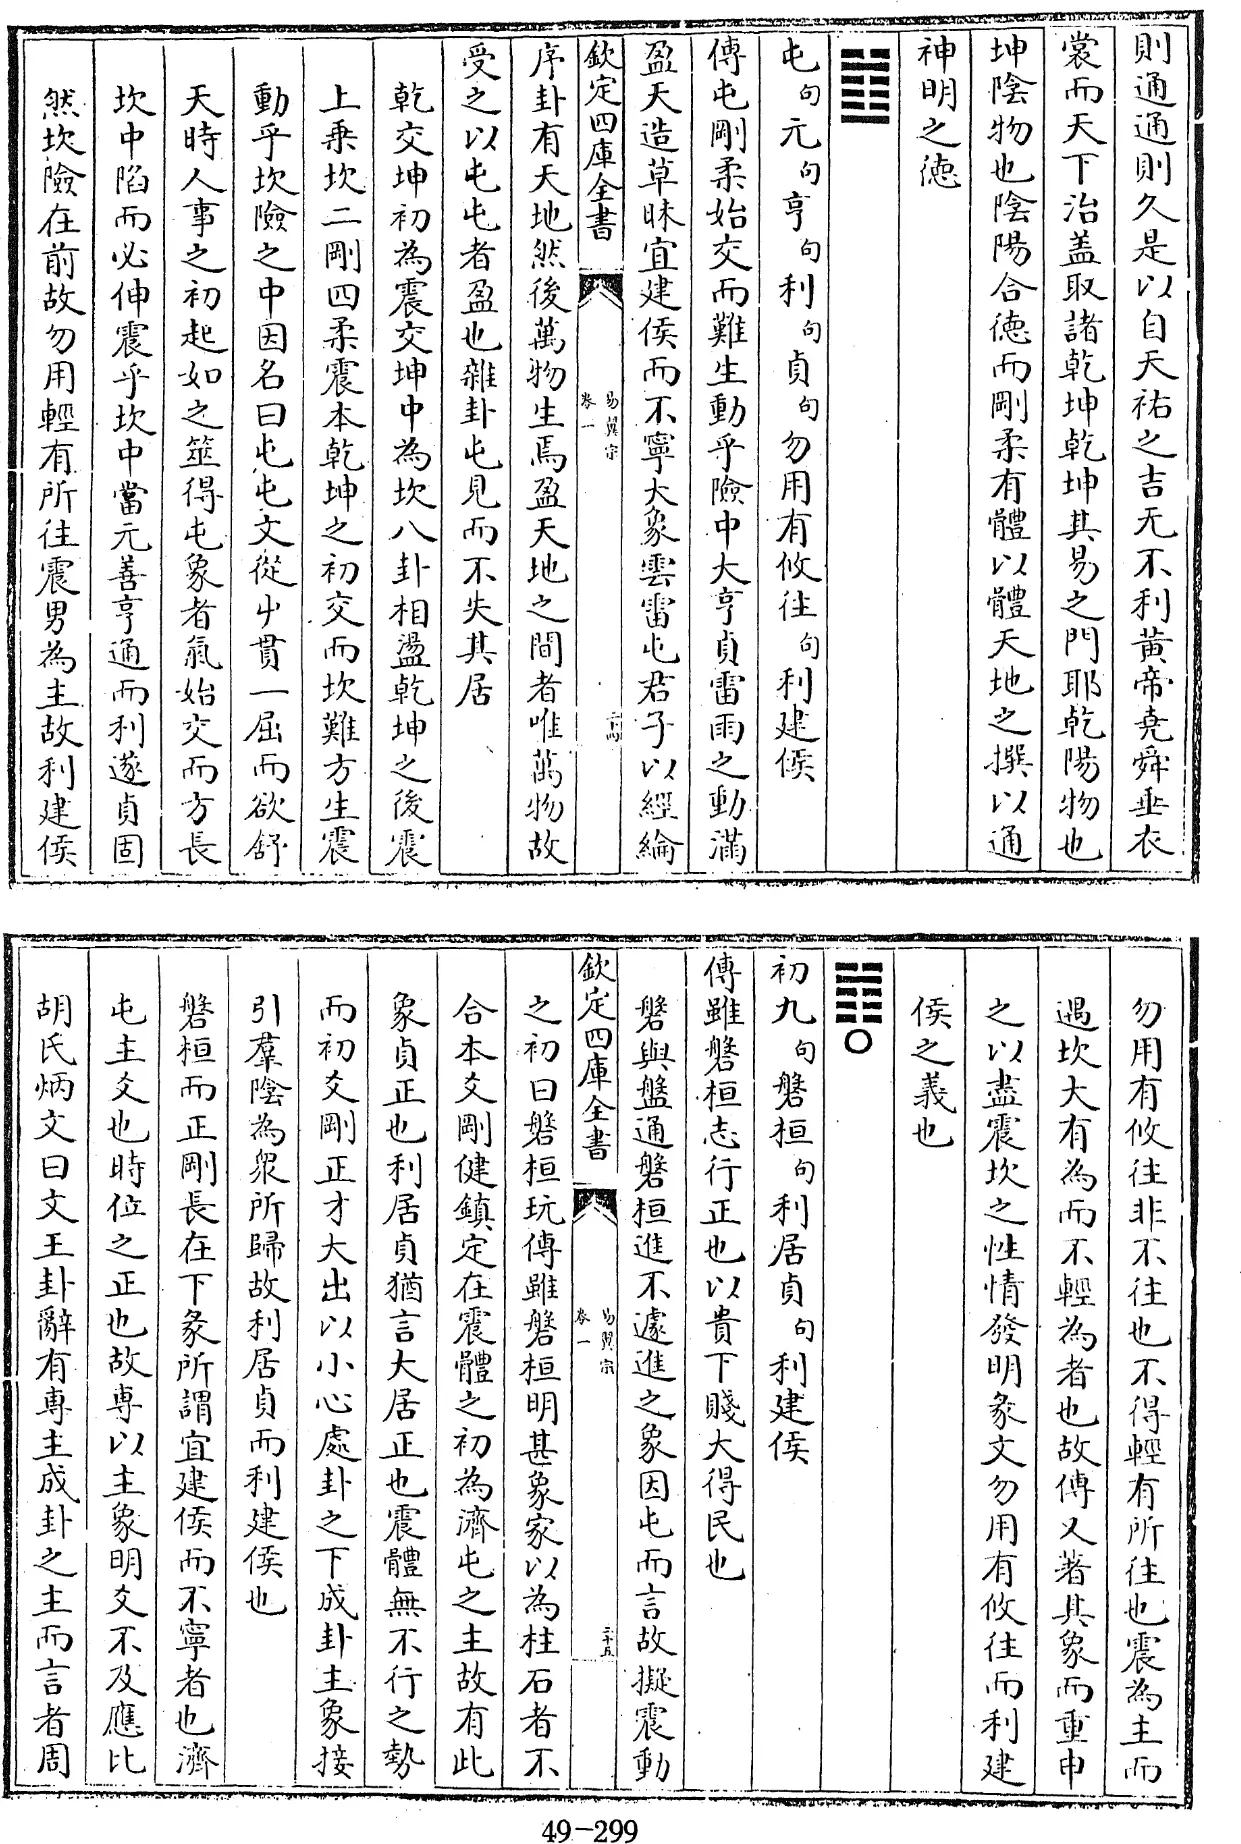 則通通則久是以自天祐之吉无不利黃帝堯舜垂衣
裳而天下治盖取諸乾坤乾坤其易之門耶乾陽物也
坤陰物也陰陽合德而剛柔有體以體天地之撰以通
神明之德
屯句元句亨句利句貞句勿用有攸往句利建侯
傳屯剛柔始交而難生動乎險中大亨貞雷雨之動滿
盈天造草昧宜建侯而不寧大象雲雷屯君子以經綸
欽定四庫全書
易翼宗
卷一
二十四
序卦有天地然後萬物生焉盈天地之間者唯萬物故
受之以屯屯者盈也雜卦屯見而不失其居
乾交坤初為震交坤中為坎八卦相盪乾坤之後震
上乗坎二剛四柔震本乾坤之初交而坎難方生震
動乎坎險之中因名曰屯屯文從屮貫一屈而欲舒
天時人事之初起如之筮得屯象者氣始交而方長
坎中陷而必伸震乎坎中當元善亨通而利遂貞固
然坎險在前故勿用輕有所往震男為主故利建侯
勿用有攸往非不往也不得輕有所往也震為主而
遇坎大有為而不輕為者也故傳又著其象而重申
之以盡震坎之性情發明彖文勿用有攸往而利建
侯之義也
初九句磐桓句利居貞句利建侯
傳雖磐桓志行正也以貴下賤大得民也
磐與盤通磐桓進不遽進之象因屯而言故擬震動
欽定四庫全書
易翼宗
卷一
二十五
之初曰磐桓玩傳雖磐桓明甚象家以為柱石者不
合本爻剛健鎮定在震體之初為濟屯之主故有此
象貞正也利居貞猶言大居正也震體無不行之勢
而初爻剛正才大出以小心處卦之下成卦主象接
引羣陰為衆所歸故利居貞而利建侯也
磐桓而正剛長在下彖所謂宜建侯而不寧者也濟
屯主爻也時位之正也故専以主象明爻不及應比
胡氏炳文曰文王卦辭有専主成卦之主而言者周
49-299